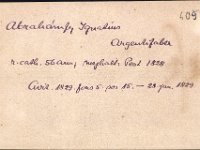 409
Abrahámfy Ignatius
Argentifaber
r. cath. 56 ann, meghalt Pest 1828
Civit. 1829. fons 5. pos 15. — 23 jan. 1829